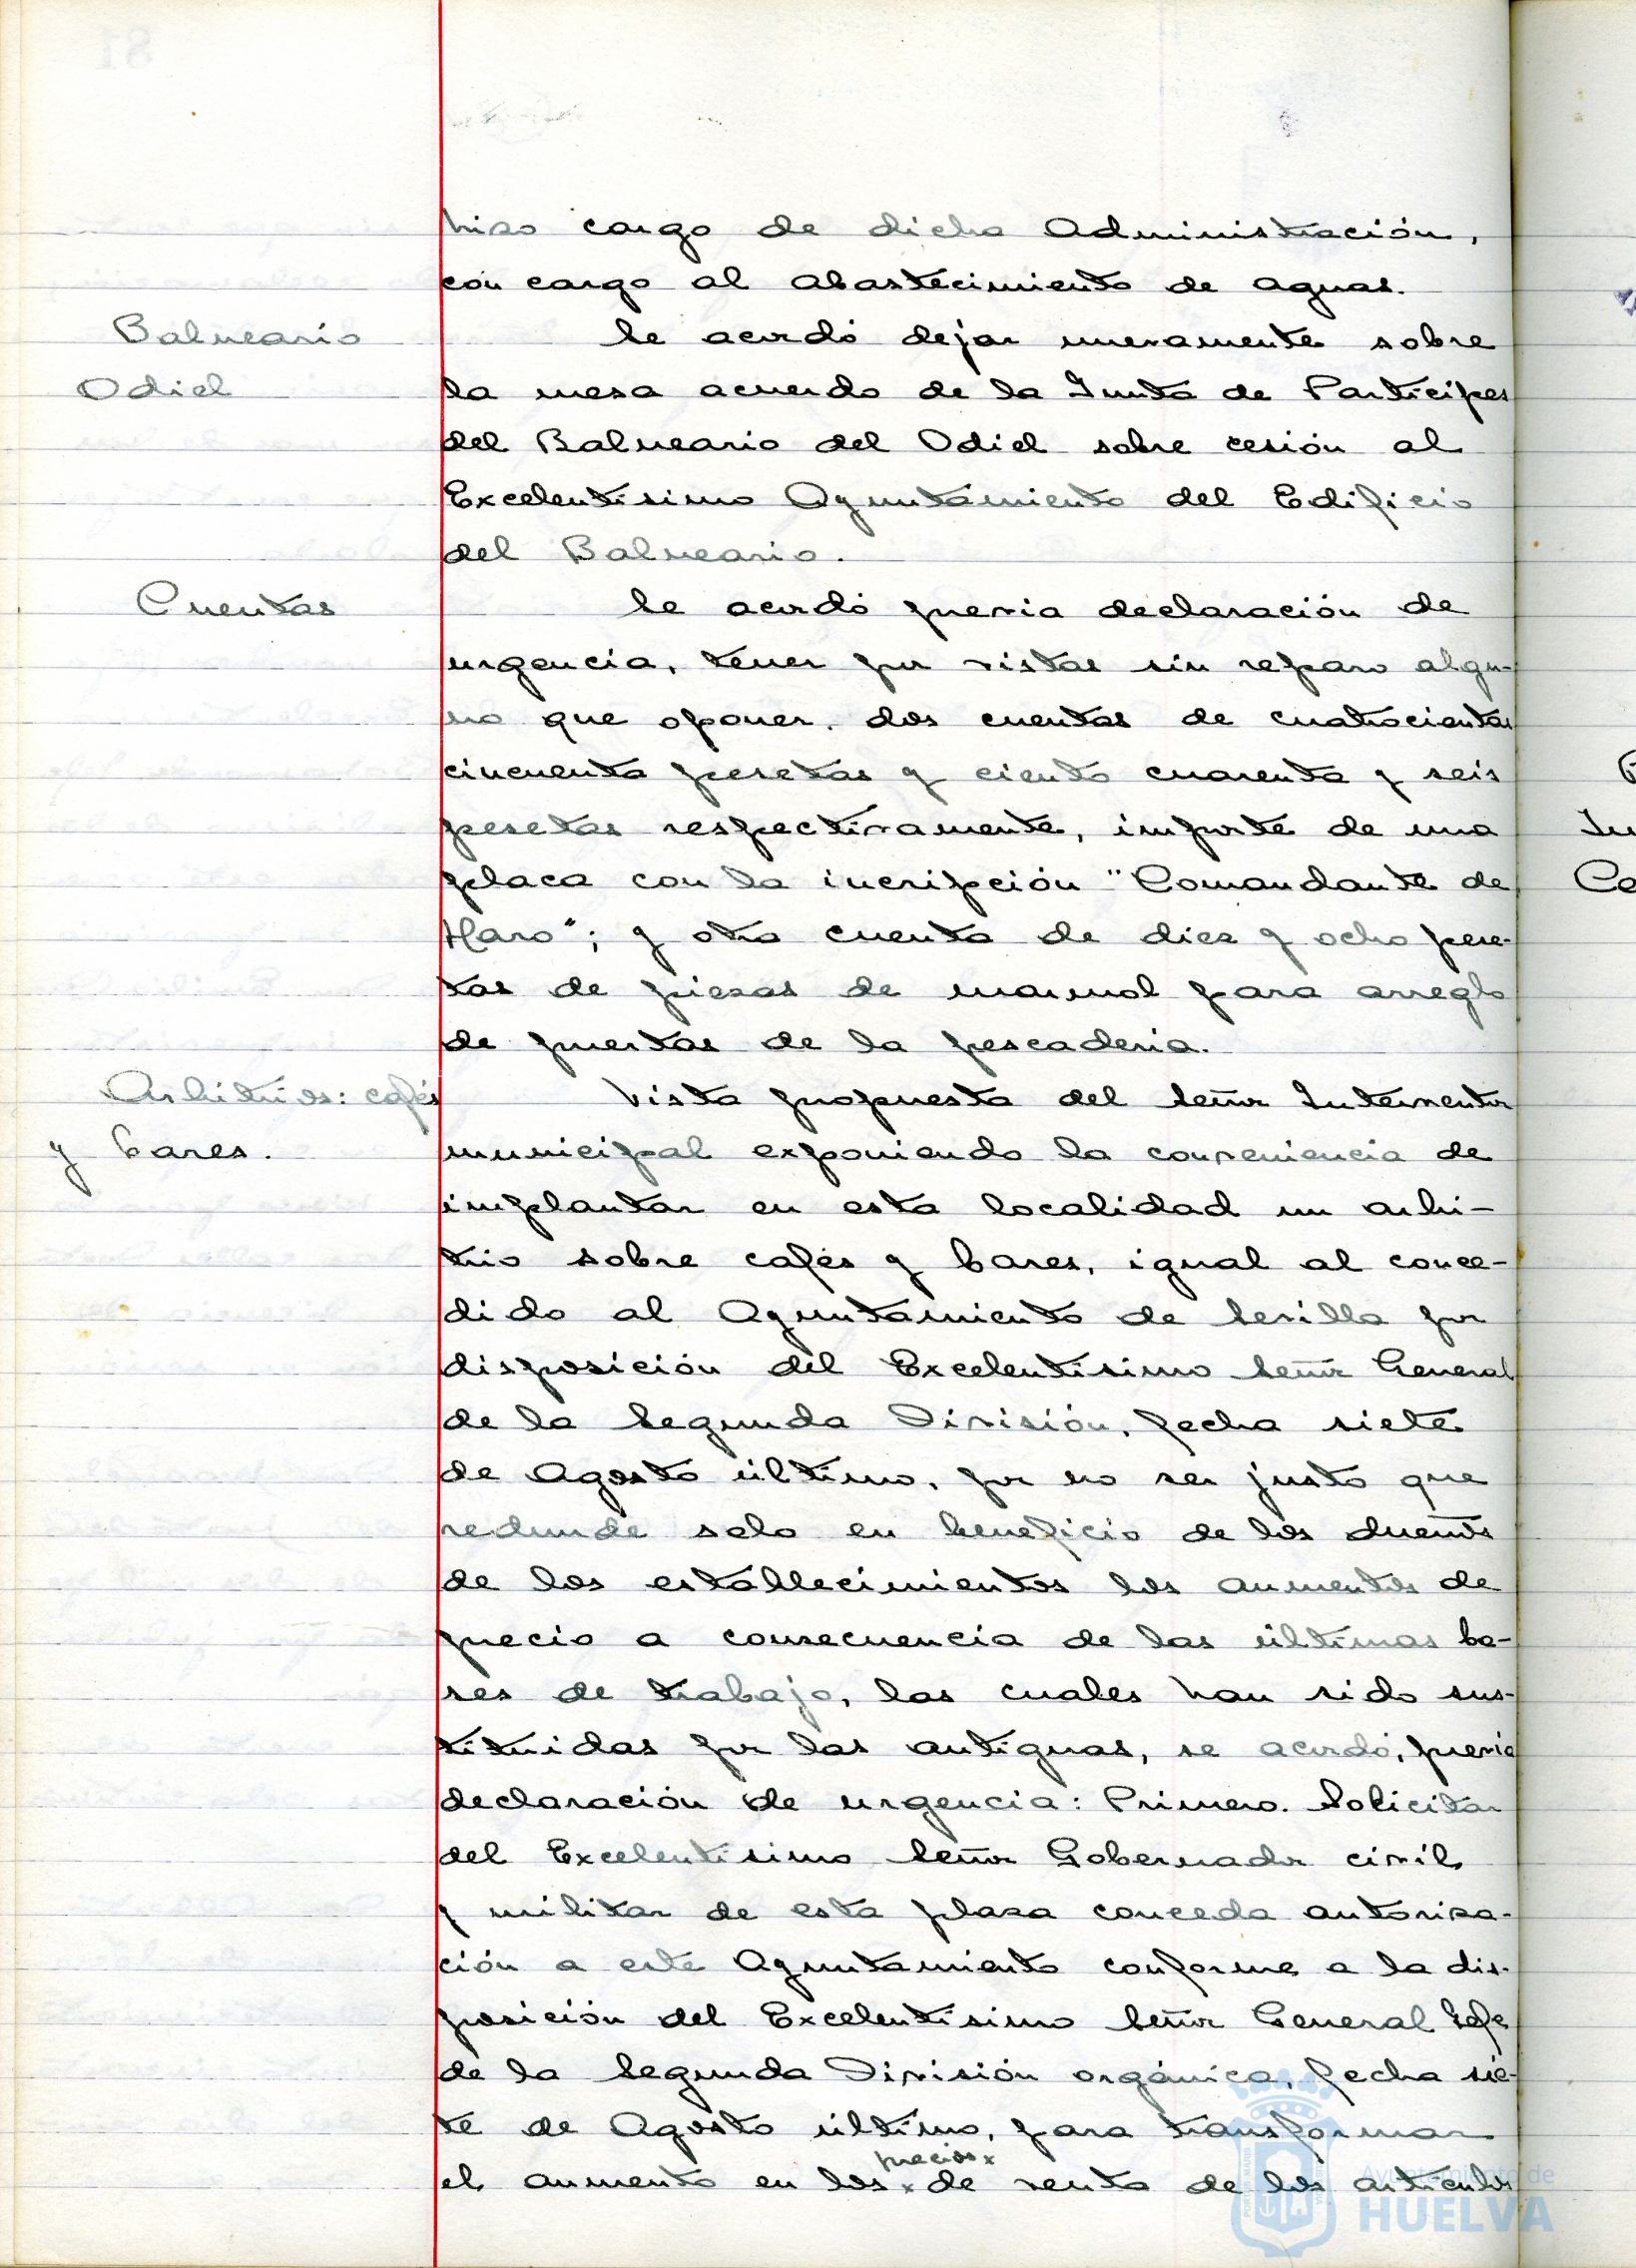 hizo cargo de dicha Administración,
con cargo al abastecimiento de aguas.
Balneario
Odiel
Se acordó dejar nuevamente sobre
la mesa acuerdo de la Junta de Partícipes
del Balneario del Odiel sobre cesión al
Excelentísimo Ayuntamiento del Edificio
del Balneario.
Cuentas
Se acordó previa declaración de
urgencia, tener por vistas sin reparo algu-
no que oponer, dos cuentas de cuatrocientas
cincuenta pesetas y ciento cuarenta y seis
pesetas respectivamente, importe de una
placa con la incripción "Comandante de
Haro"; y otra cuenta de diez y ocho pese-
tas de piezas de marmol para arreglo
de puertas de la pescadería.
Arbitrios: cafés
y bares.
Vista propuesta del Señor Interventor
municipal exponiendo la conveniencia de
implantar en esta localidad un arbi-
trio sobre cafés y bares, igual al conce-
dido al Ayuntamiento de Sevilla por
disposición del Excelentísimo Señor General
de la Segunda División, fecha siete
de Agosto último, por no ser justo que
redunde solo en beneficio de los dueños
de los establecimientos los aumentos de
precio a consecuencia de las últimas ba-
ses de trabajo, las cuales han sido sus-
tituidas por las antiguas, se acordó, previa
declaración de urgencia: Primero. Solicitar
del Excelentísimo Señor Gobernador civil
y militar de esta plaza conceda autoriza-
ción a este Ayuntamiento conforme a la dis-
posición del Excelentísimo Señor General Jefe
de la Segunda División orgánica, fecha sie-
te de Agosto último, para transformar
precios x
el aumento en los x de venta de los artículos
Ayuntamiento de
HUELVA